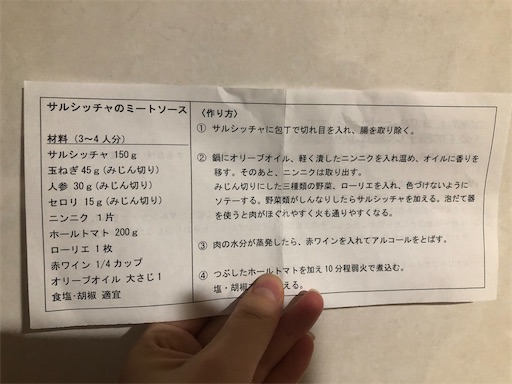 サルシッチャのミートソース
材料（3～4人分）
サルシッチャ 150ｇ
玉ねぎ45ｇ(みじん切り)
人参 30ｇ(みじん切り)
セロリ 15ｇ(みじん切り)
ニンニク 1片
ホールトマト 200ｇ
ローリエ 1枚
赤ワイン 1/4カップ
オリーブオイル 大さじ1
食塩・胡椒 適宜
〈作り方〉
① サルシッチャに包丁で切れ目を入れ、腸を取り除く。
② 鍋にオリーブオイル、軽く潰したニンニクを入れ温め、オイルに香りを
移す。そのあと、ニンニクは取り出す。
みじん切りにした三種類の野菜、ローリエを入れ、色づけないように
ソテーする。野菜類がしんなりしたらサルシッチャを加える。泡だて器
を使うと肉がほぐれやすく火も通りやすくなる。
③ 肉の水分が蒸発したら、赤ワインを入れてアルコールをとばす。
④ つぶしたホールトマトを加え10分程弱火で煮込む。
塩・胡椒 える。